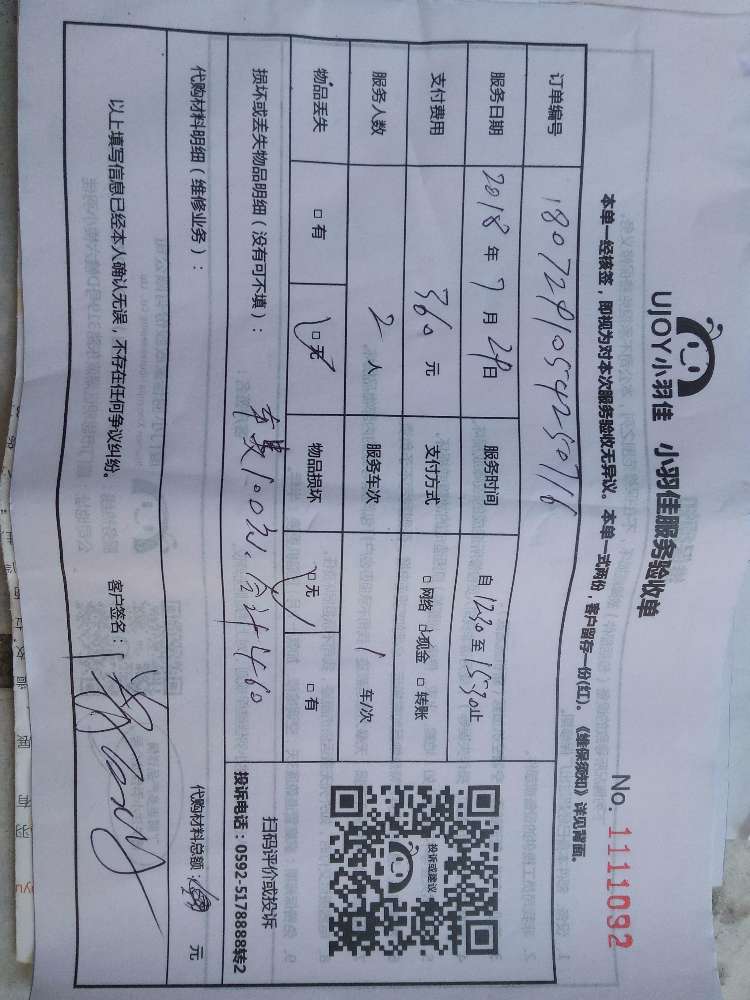 UJOY小羽佳 小羽佳服务验收单
No. 1111092
本单一经核签，即视为对本次服务验收无异议。本单一式两份，客户留存一份(红)。《维保须知》详见背面。
订单编号
服务日期 2018 年 7 月 29 日 服务时间 自 12:30 至 15:30 止
支付费用 360 元 支付方式 □ 网络 □ 现金 □ 转账
服务人数 2 人 服务车次 1 车/次
物品丢失 □ 有 □ 无 物品损坏 □ 无 □ 有
损坏或丢失物品明细（没有可不填）：
车费100元. 合计460
投诉或建议
扫码评价或投诉
投诉电话：0592-5178888转2
代购材料明细（维修业务）：
代购材料总额： 元
以上填写信息已经本人确认无误，不存在任何争议纠纷。
客户签名：